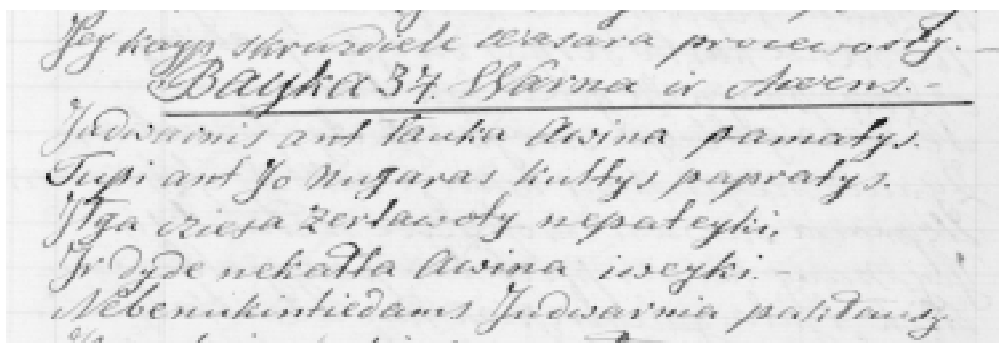 Jey kayp skruzdiele wasara procewosty.
Bayka 34. Warna ir Awens.-
Judwarnis ant lauku Awina pamatys.
Tupi ant Jo Nugaras kultys papratys.
Jlga cziesa zertawoty nepaleyki,
Jr dyde nekalta Awina iweyki.-
Nebenukintiedams Judwarnia paklausy